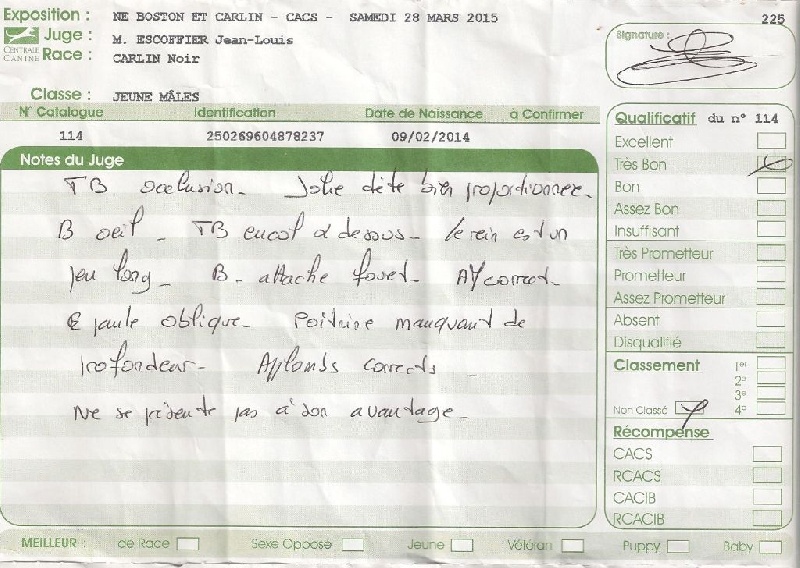 Exposition : NE BOSTON ET CARLIN - CACS - SAMEDI 28 MARS 2015
225
CENTRALE CANINE
Juge : M. ESCOFFIER Jean-Louis
Race : CARLIN Noir
Signature :
Classe : JEUNE MÂLES
N° Catalogue Identification Date de Naissance à Confirmer
114 250269604878237 09/02/2014
Notes du Juge
TB occlusion - Jolie tête bien proportionnée -
B oeil - TB encol & dessus - le rein est un
peu long - B - attache fouet - AV correct -
Epaule oblique - Poitrine manquant de
profondeur - Applombs corrects
Ne se présente pas à son avantage -
Qualificatif du n° 114
Excellent
Très Bon
Bon
Assez Bon
Insuffisant
Très Prometteur
Prometteur
Assez Prometteur
Absent
Disqualifié
Classement 1er
2e
3e
Non Classé 4e
Récompense
CACS
RCACS
CACIB
RCACIB
MEILLEUR : de Race Sexe Opposé Jeune Vétéran Puppy Baby